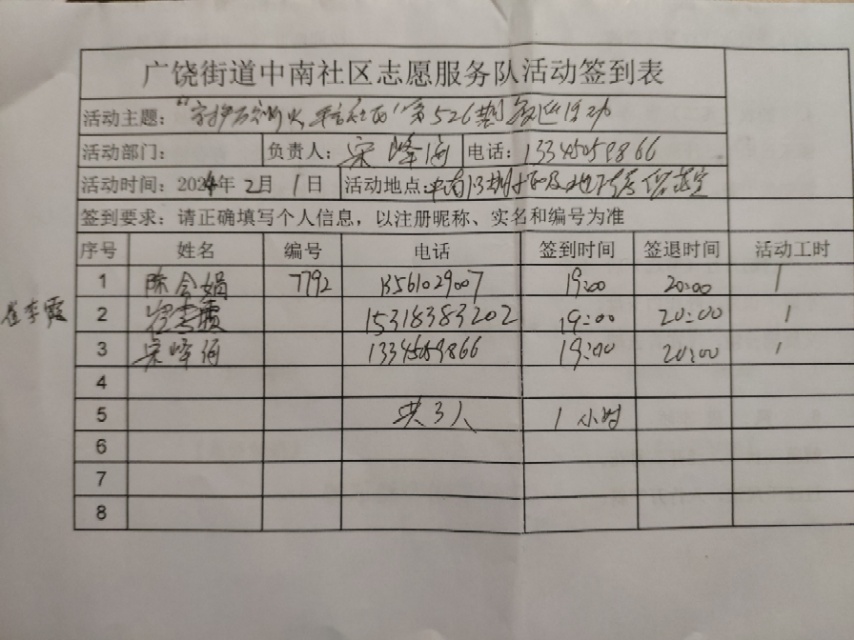 广饶街道中南社区志愿服务队活动签到表
活动主题：“守护万家灯火 平安社区”第526期夜巡活动
活动部门： 负责人：宋峰伯 电话：13345059866
活动时间：2024年2月1日 活动地点：中南
签到要求：请正确填写个人信息，以注册昵称、实名和编号为准
序号 姓名 编号 电话 签到时间 签退时间 活动工时
1 陈会娟 7792 13561029007 19:00 20:00 1
崔李霞
2 15318383202 19:00 20:00 1
3 宋峰伯 13345059866 19:00 20:00 1
4
5 共3人 1小时
6
7
8